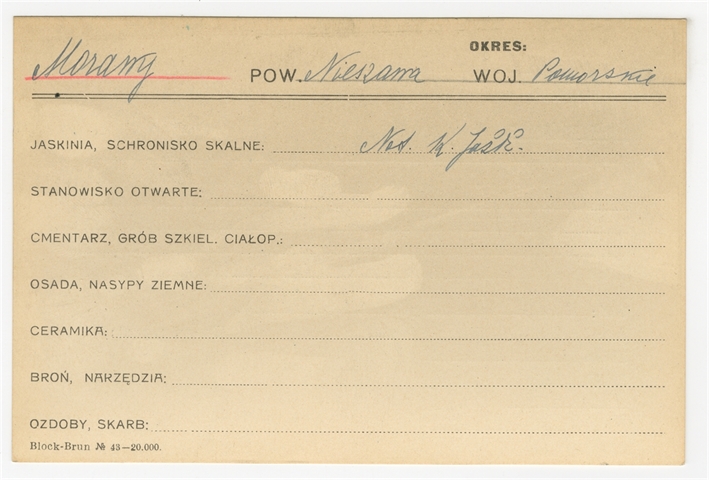 OKRES:
Morawy POW. Nieszawa WOJ. Pomorskie
JASKINIA, SCHRONISKO SKALNE: Not. K. Jażdż.
STANOWISKO OTWARTE:
CMENTARZ, GRÓB SZKIEL. CIAŁOP.:
OSADA, NASYPY ZIEMNE:
CERAMIKA:
BROŃ, NARZĘDZIA:
OZDOBY, SKARB:
Block-Brun № 43—20.000.